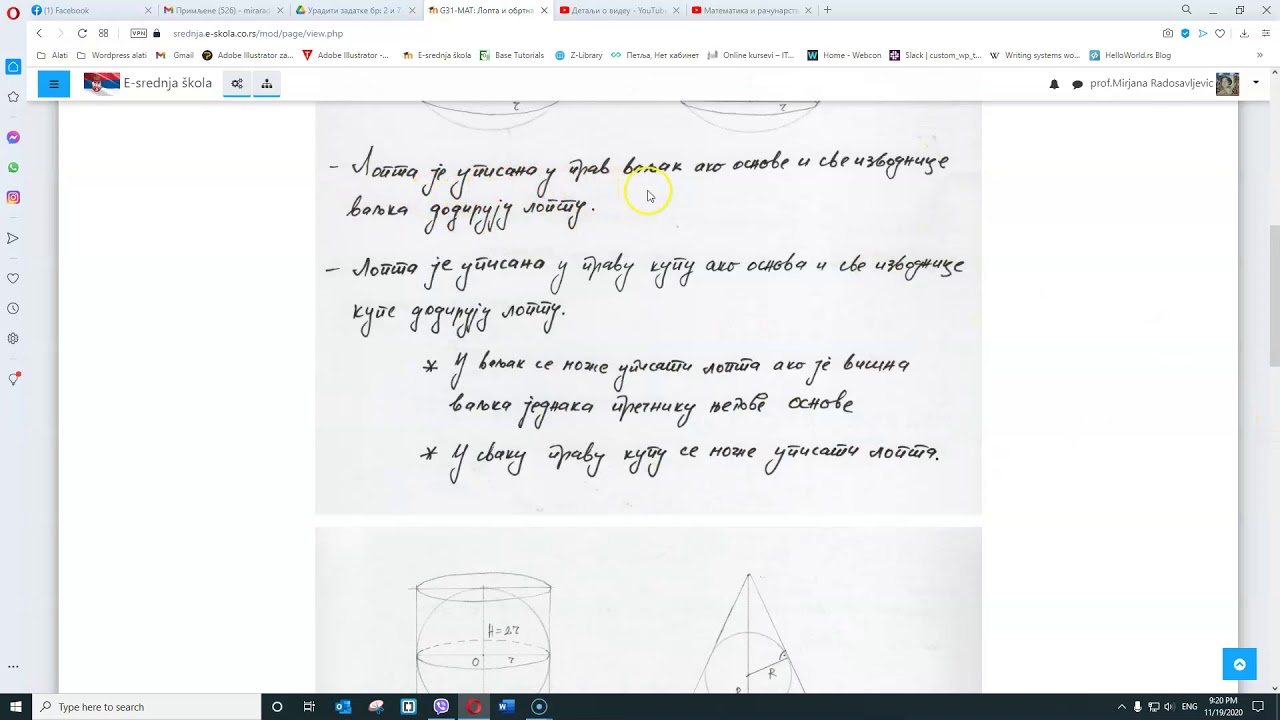 (1) Facebook
Примљене (526) - mirarad
Урадити задатке бр: 2 и 7
G31-MAT: Лопта и обртна
Детаљи о видеу - YouTube
Математика и рачунарств
VPN
srednja.e-skola.co.rs/mod/page/view.php
Alati
Wordpress alati
Gmail
Adobe Illustrator za...
Adobe Illustrator -...
E-srednja škola
Base Tutorials
Z-Library
Петља, Нет кабинет
Online kursevi – IT...
Home - Webcon
Slack | custom_wp_t...
Writing systems wo...
HelloWorld.rs Blog
E-srednja škola
prof.Mirjana Radosavljevic
r
r
- Лопта је уписана у прав ваљак ако основе и све изводнице
ваљка додирују лопту.
- Лопта је уписана у праву купу ако основа и све изводнице
купе додирују лопту.
* У ваљак се може уписати лопта ако је висина
ваљка једнака пречнику његове основе
* У сваку праву купу се може уписати лопта.
H=2r
O
r
R
Type here to search
ENG
9:20 PM
11/19/2020